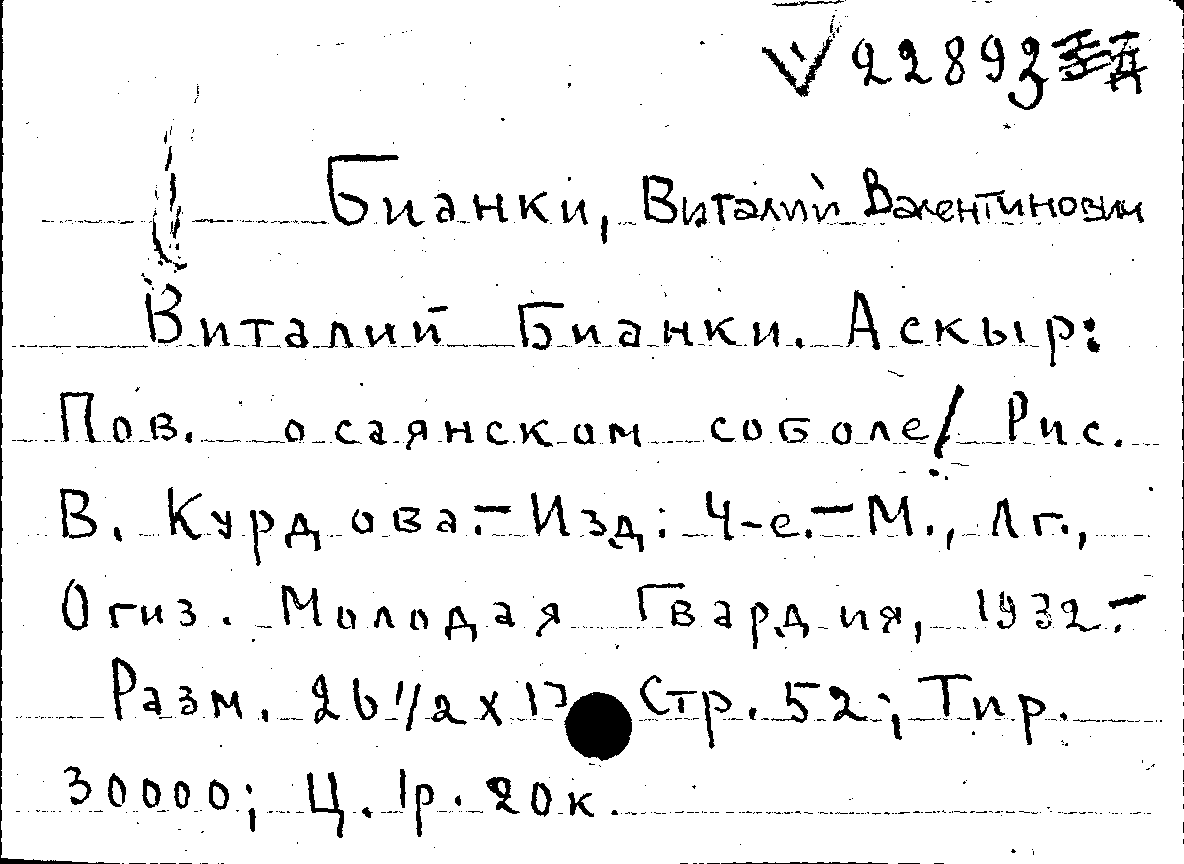 V 22893
Бианки, Виталий Валентинович
Виталий Бианки. Аскыр:
Пов. о саянском соболе/ Рис.
В. Курдова.- Изд: 4-е.- М., Лг.,
Огиз. Молодая Гвардия, 1932.-
Разм. 26 1/2 x Стр. 52; Тир.
30000; Ц. 1р. 20к.